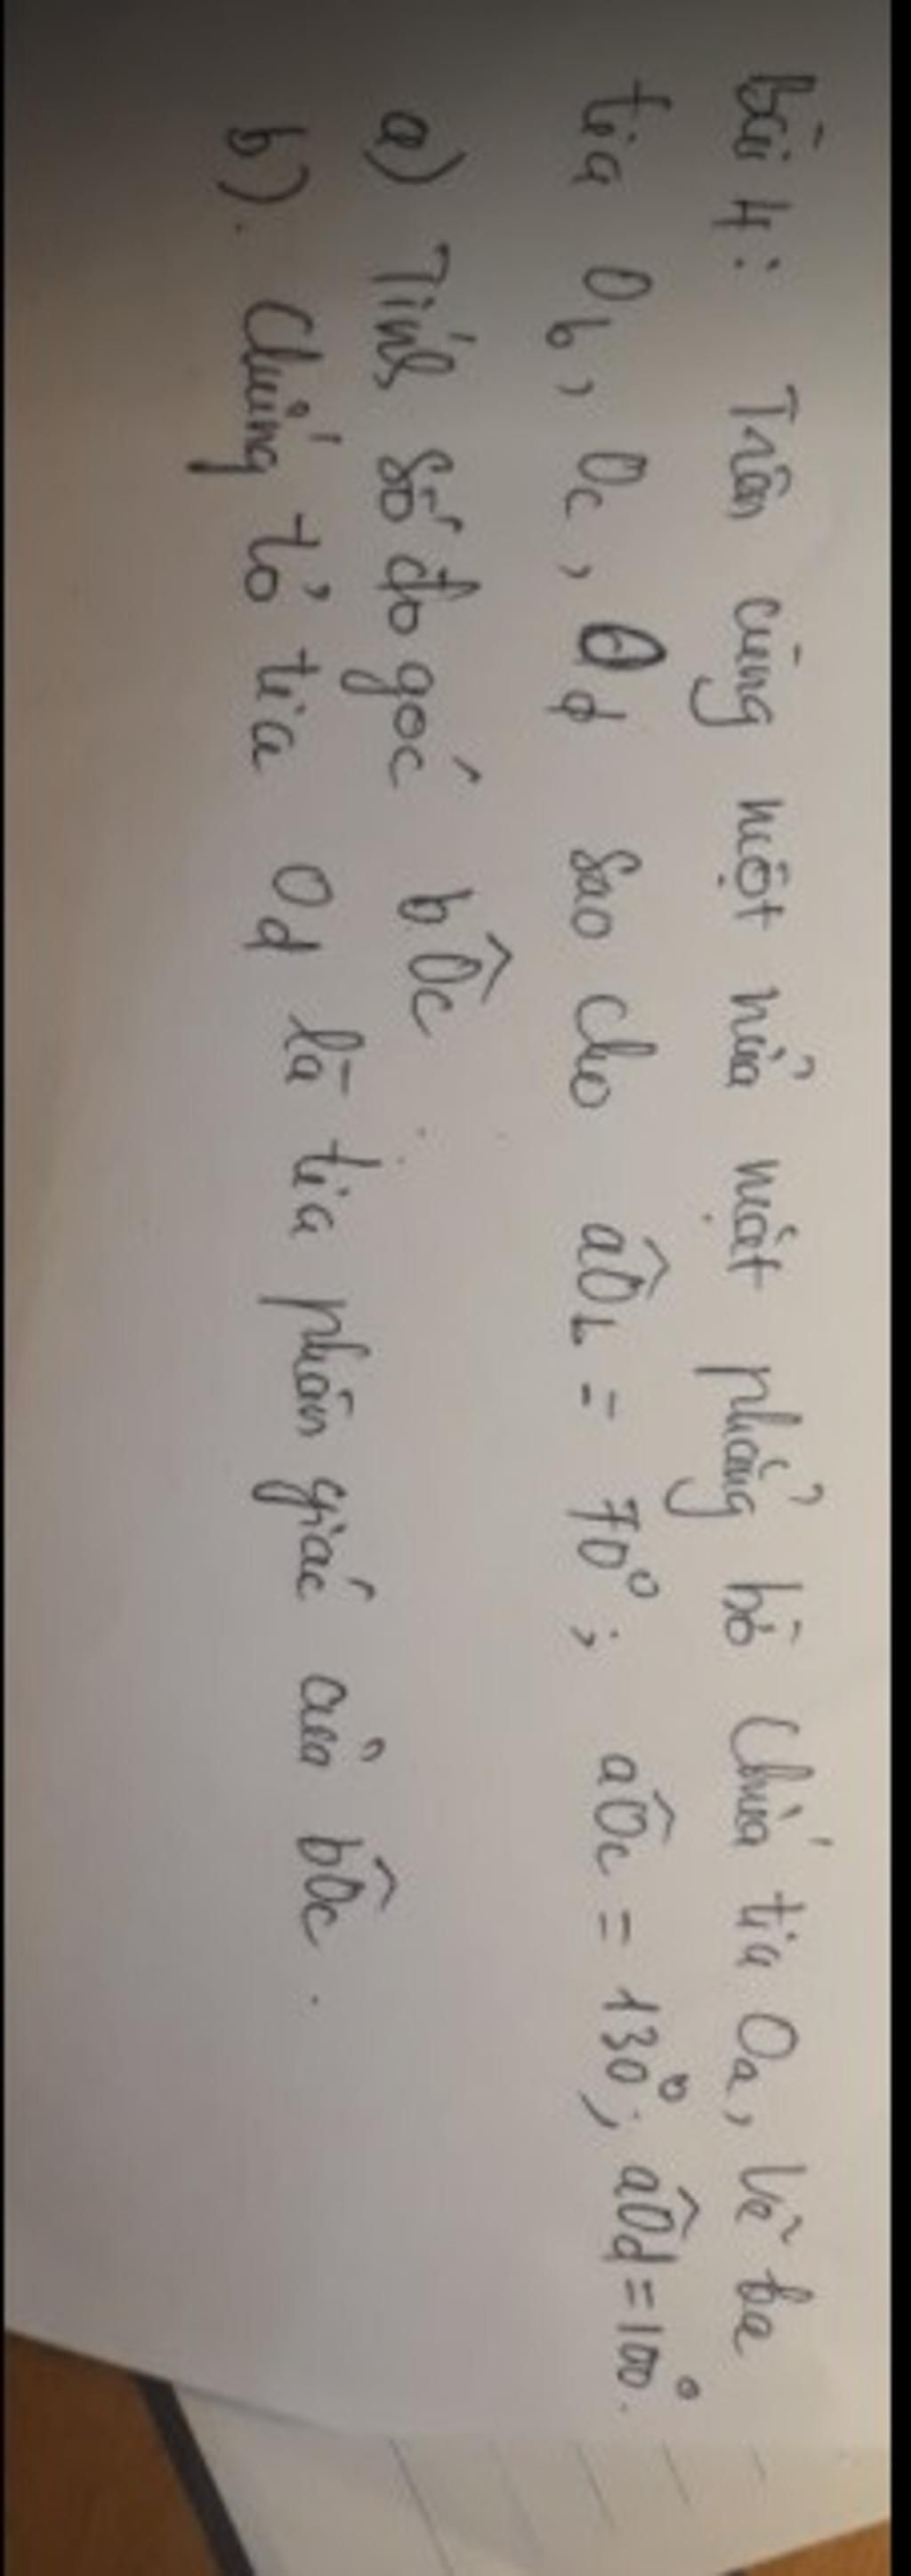 Bài 4: Trên cùng một nửa mặt phẳng bờ chứa tia Oa, vẽ ba
tia Ob, Oc, Od sao cho aÔb = 70°; aÔc = 130°; aÔd = 100°.
a) Tính số đo góc bÔc
b). Chứng tỏ tia Od là tia phân giác của bÔc.